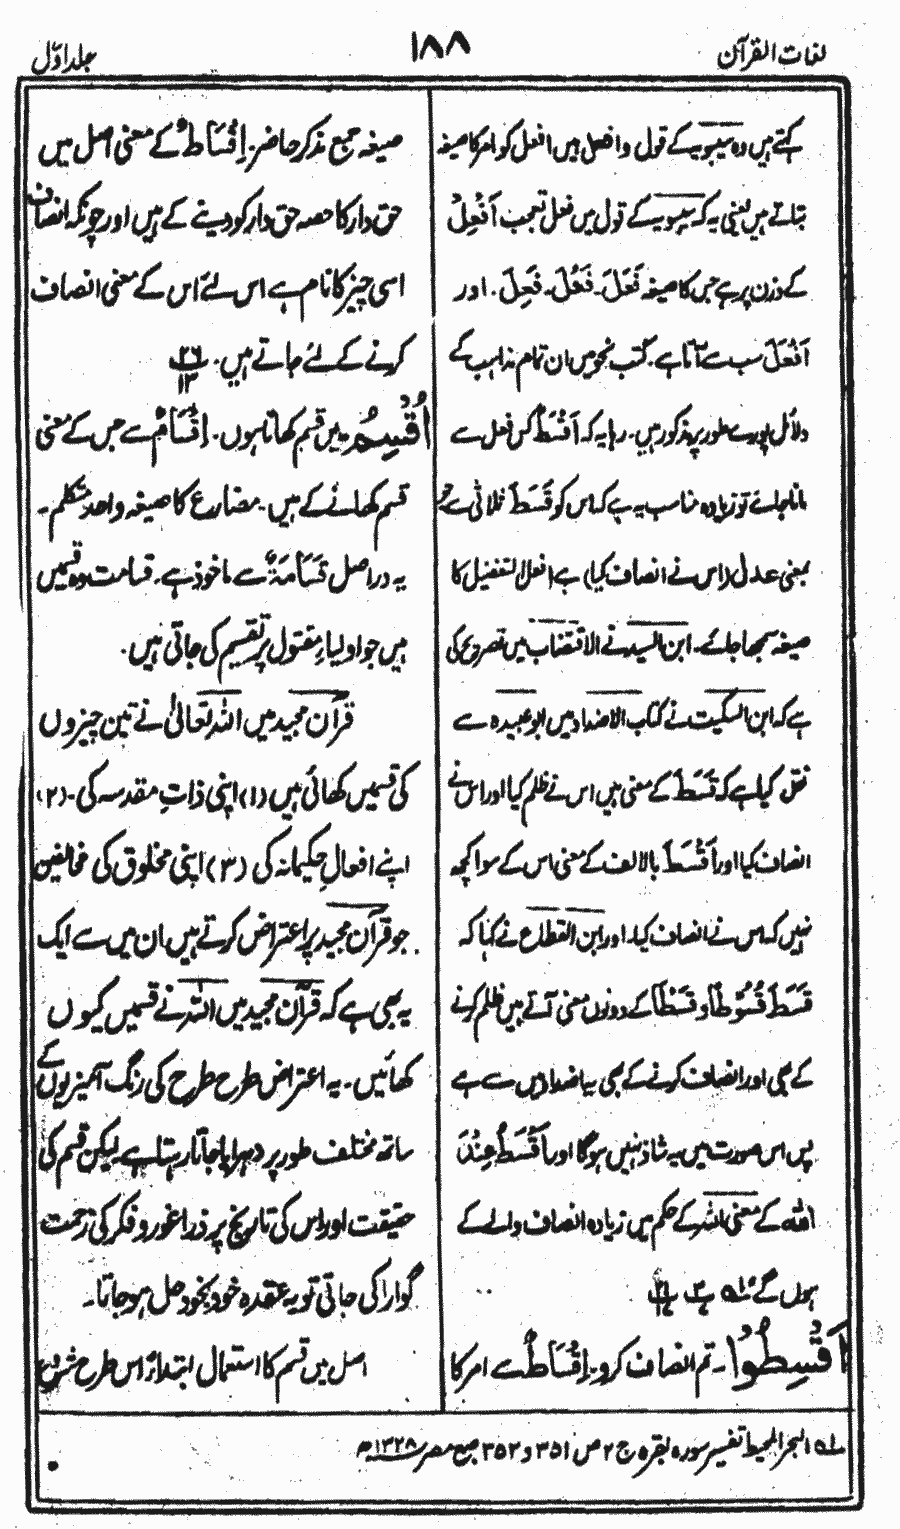 لغات القرآن
۱۸۸
جلد اوّل
کہتے ہیں وہ سیبویہ کے قول و افعل ہیں افعل کو امر کا صیغہ
بتاتے ہیں یعنی یہ کہ سیبویہ کے قول میں فعل تعجب اَفْعِلْ
کے وزن پر ہے جس کا صیغہ فَعَلَ۔ فَعُلَ۔ فَعِلَ۔ اور
اَفْعَلَ سب سے آتا ہے۔ کتب نحو میں ان تمام مذاہب کے
دلائل پورے طور پر مذکور ہیں۔ رہا یہ کہ اَقْسَطُ کس فعل سے
مانا جائے تو زیادہ مناسب یہ ہے کہ اس کو قَسَطَ ثلاثی سے جو
بمعنی عدل (اس نے انصاف کیا) ہے افعل التفضیل کا
صیغہ سمجھا جائے۔ ابن السید نے الاقتضاب میں تصریح کی
ہے کہ ابن السکیت نے کتاب الاضداد میں ابو عبیدہ سے
نقل کیا ہے کہ قَسَطَ کے معنی ہیں اس نے ظلم کیا اور اس نے
انصاف کیا اور اَقْسَطَ بالالف کے معنی اس کے سوا کچھ
نہیں کہ اس نے انصاف کیا۔ اور ابن القطاع نے کہا کہ
قَسَطَ قُسُوْطًا و قَسْطًا کے دونوں معنی آتے ہیں ظلم کرنے
کے بھی اور انصاف کرنے کے بھی یہ اضداد میں سے ہے
پس اس صورت میں یہ شاذ نہیں ہوگا اور اَقْسَطُ عِنْدَ
اللّٰہ کے معنی اللہ کے حکم میں زیادہ انصاف والے کے
ہوں گے
اَقْسِطُوْا۔ تم انصاف کرو۔ اِقْسَاطٌ سے امر کا
صیغہ جمع مذکر حاضر۔ اِقْسَاطٌ کے معنی اصل میں
حق دار کا حصہ حق دار کو دینے کے ہیں اور چونکہ انصاف
اسی چیز کا نام ہے اس لئے اس کے معنی انصاف
کرنے کے لئے جاتے ہیں۔ ۲۶ ۱۳
اُقْسِمُ۔ میں قسم کھاتا ہوں۔ اِقْسَامٌ سے جس کے معنی
قسم کھانے کے ہیں۔ مضارع کا صیغہ واحد متکلم۔
یہ دراصل قَسَامَۃٌ سے ماخوذ ہے۔ قسامت وہ قسمیں
ہیں جو اولیاءِ مقتول پر تقسیم کی جاتی ہیں۔
قرآن مجید میں اللہ تعالیٰ نے تین چیزوں
کی قسمیں کھائی ہیں (۱) اپنی ذاتِ مقدسہ کی۔ (۲)
اپنے افعالِ حکیمانہ کی (۳) اپنی مخلوق کی مخالفین
جو قرآن مجید پر اعتراض کرتے ہیں ان میں سے ایک
یہ بھی ہے کہ قرآن مجید میں اللہ نے قسمیں کیوں
کھائیں۔ یہ اعتراض طرح طرح کی رنگ آمیزیوں کے
ساتھ مختلف طور پر دہرایا جاتا رہتا ہے لیکن قسم کی
حقیقت اور اس کی تاریخ پر ذرا غور و فکر کی زحمت
گوارا کی جاتی تو یہ عقدہ خود بخود حل ہو جاتا۔
اصل میں قسم کا استعمال ابتداءً اس طرح شروع
۱۵۱ البحر المحیط تفسیر سورہ بقرہ ج ۲ ص ۳۵۱ و ۳۵۲ طبع مصر ۱۳۲۸ھ